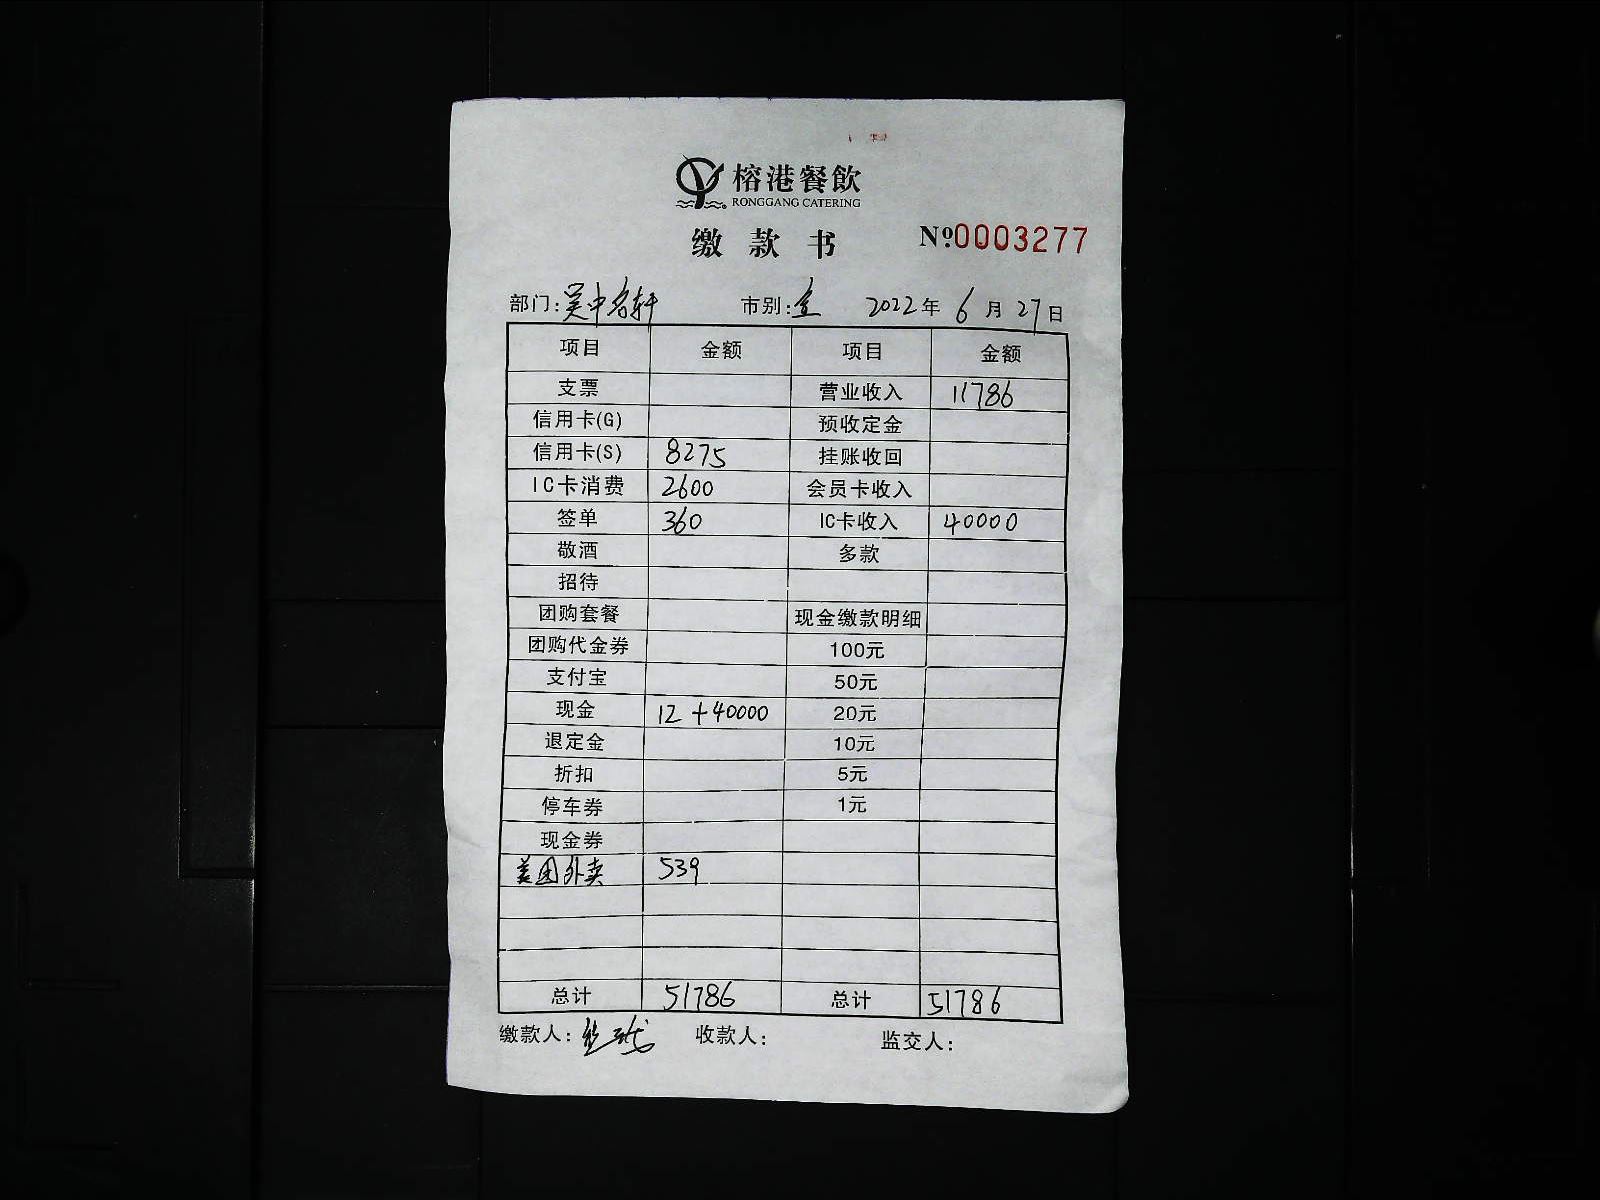 榕港餐飲
RONGGANG CATERING
缴款书 №0003277
部门:吴中名轩 市别: 2022年6月27日
项目 金额 项目 金额
支票 营业收入 11786
信用卡(G) 预收定金
信用卡(S) 8275 挂账收回
IC卡消费 2600 会员卡收入
签单 360 IC卡收入 40000
敬酒 多款
招待
团购套餐 现金缴款明细
团购代金券 100元
支付宝 50元
现金 12+40000 20元
退定金 10元
折扣 5元
停车券 1元
现金券
美团外卖 539
总计 51786 总计 51786
缴款人: 收款人: 监交人: